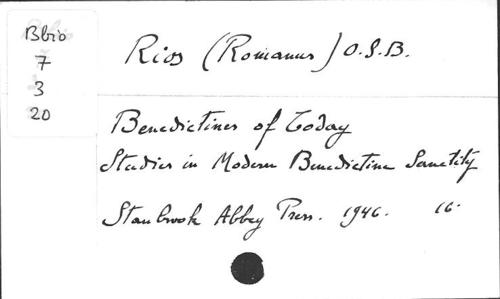 Bbio
7
3
20
Rios (Romanus) O.S.B.
Benedictines of Today
Studies in Modern Benedictine Sanctity
Stanbrook Abbey Press. 1946. 16.